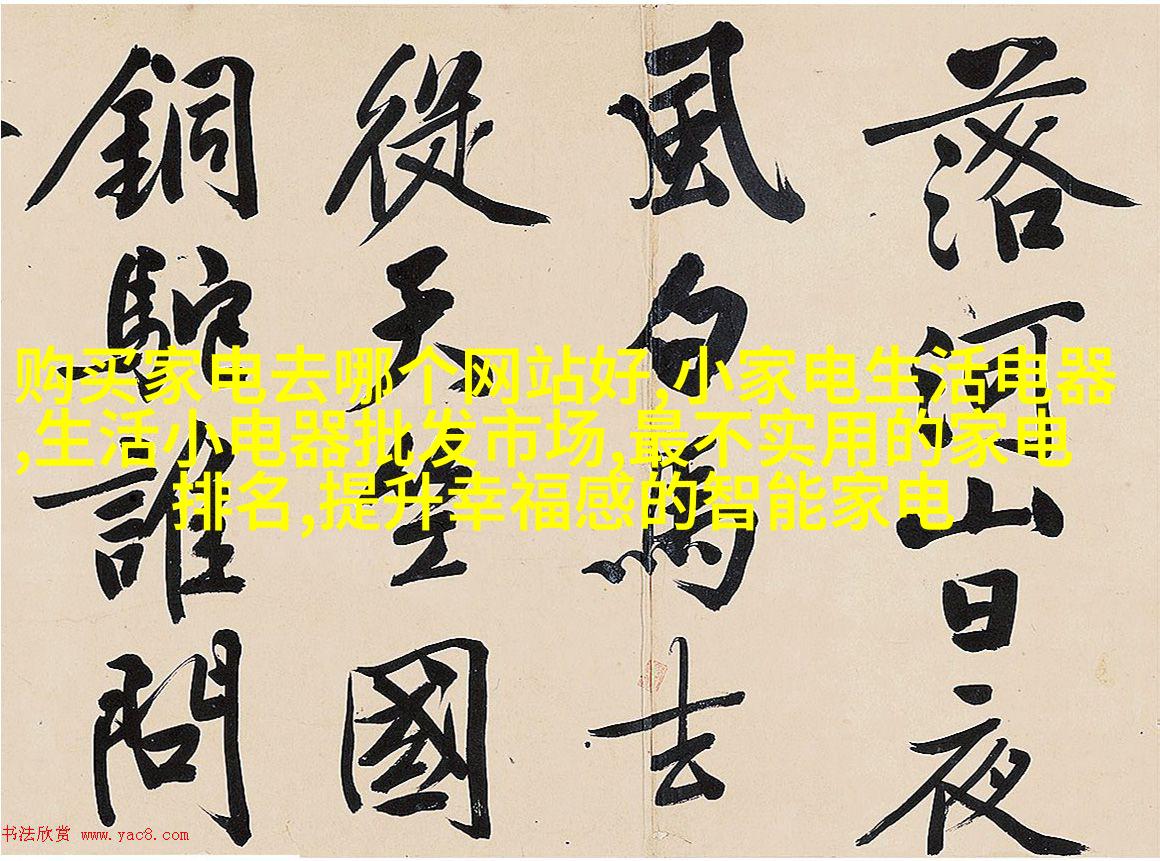 落河山日夜
風白馬去
從天竺國
銅駝誰問
购买家电去哪个网站好,小家电生活电器
,生活小电器批发市场,最不实用的家电
排名,提升幸福感的智能家电
书法欣赏 www.yac8.com